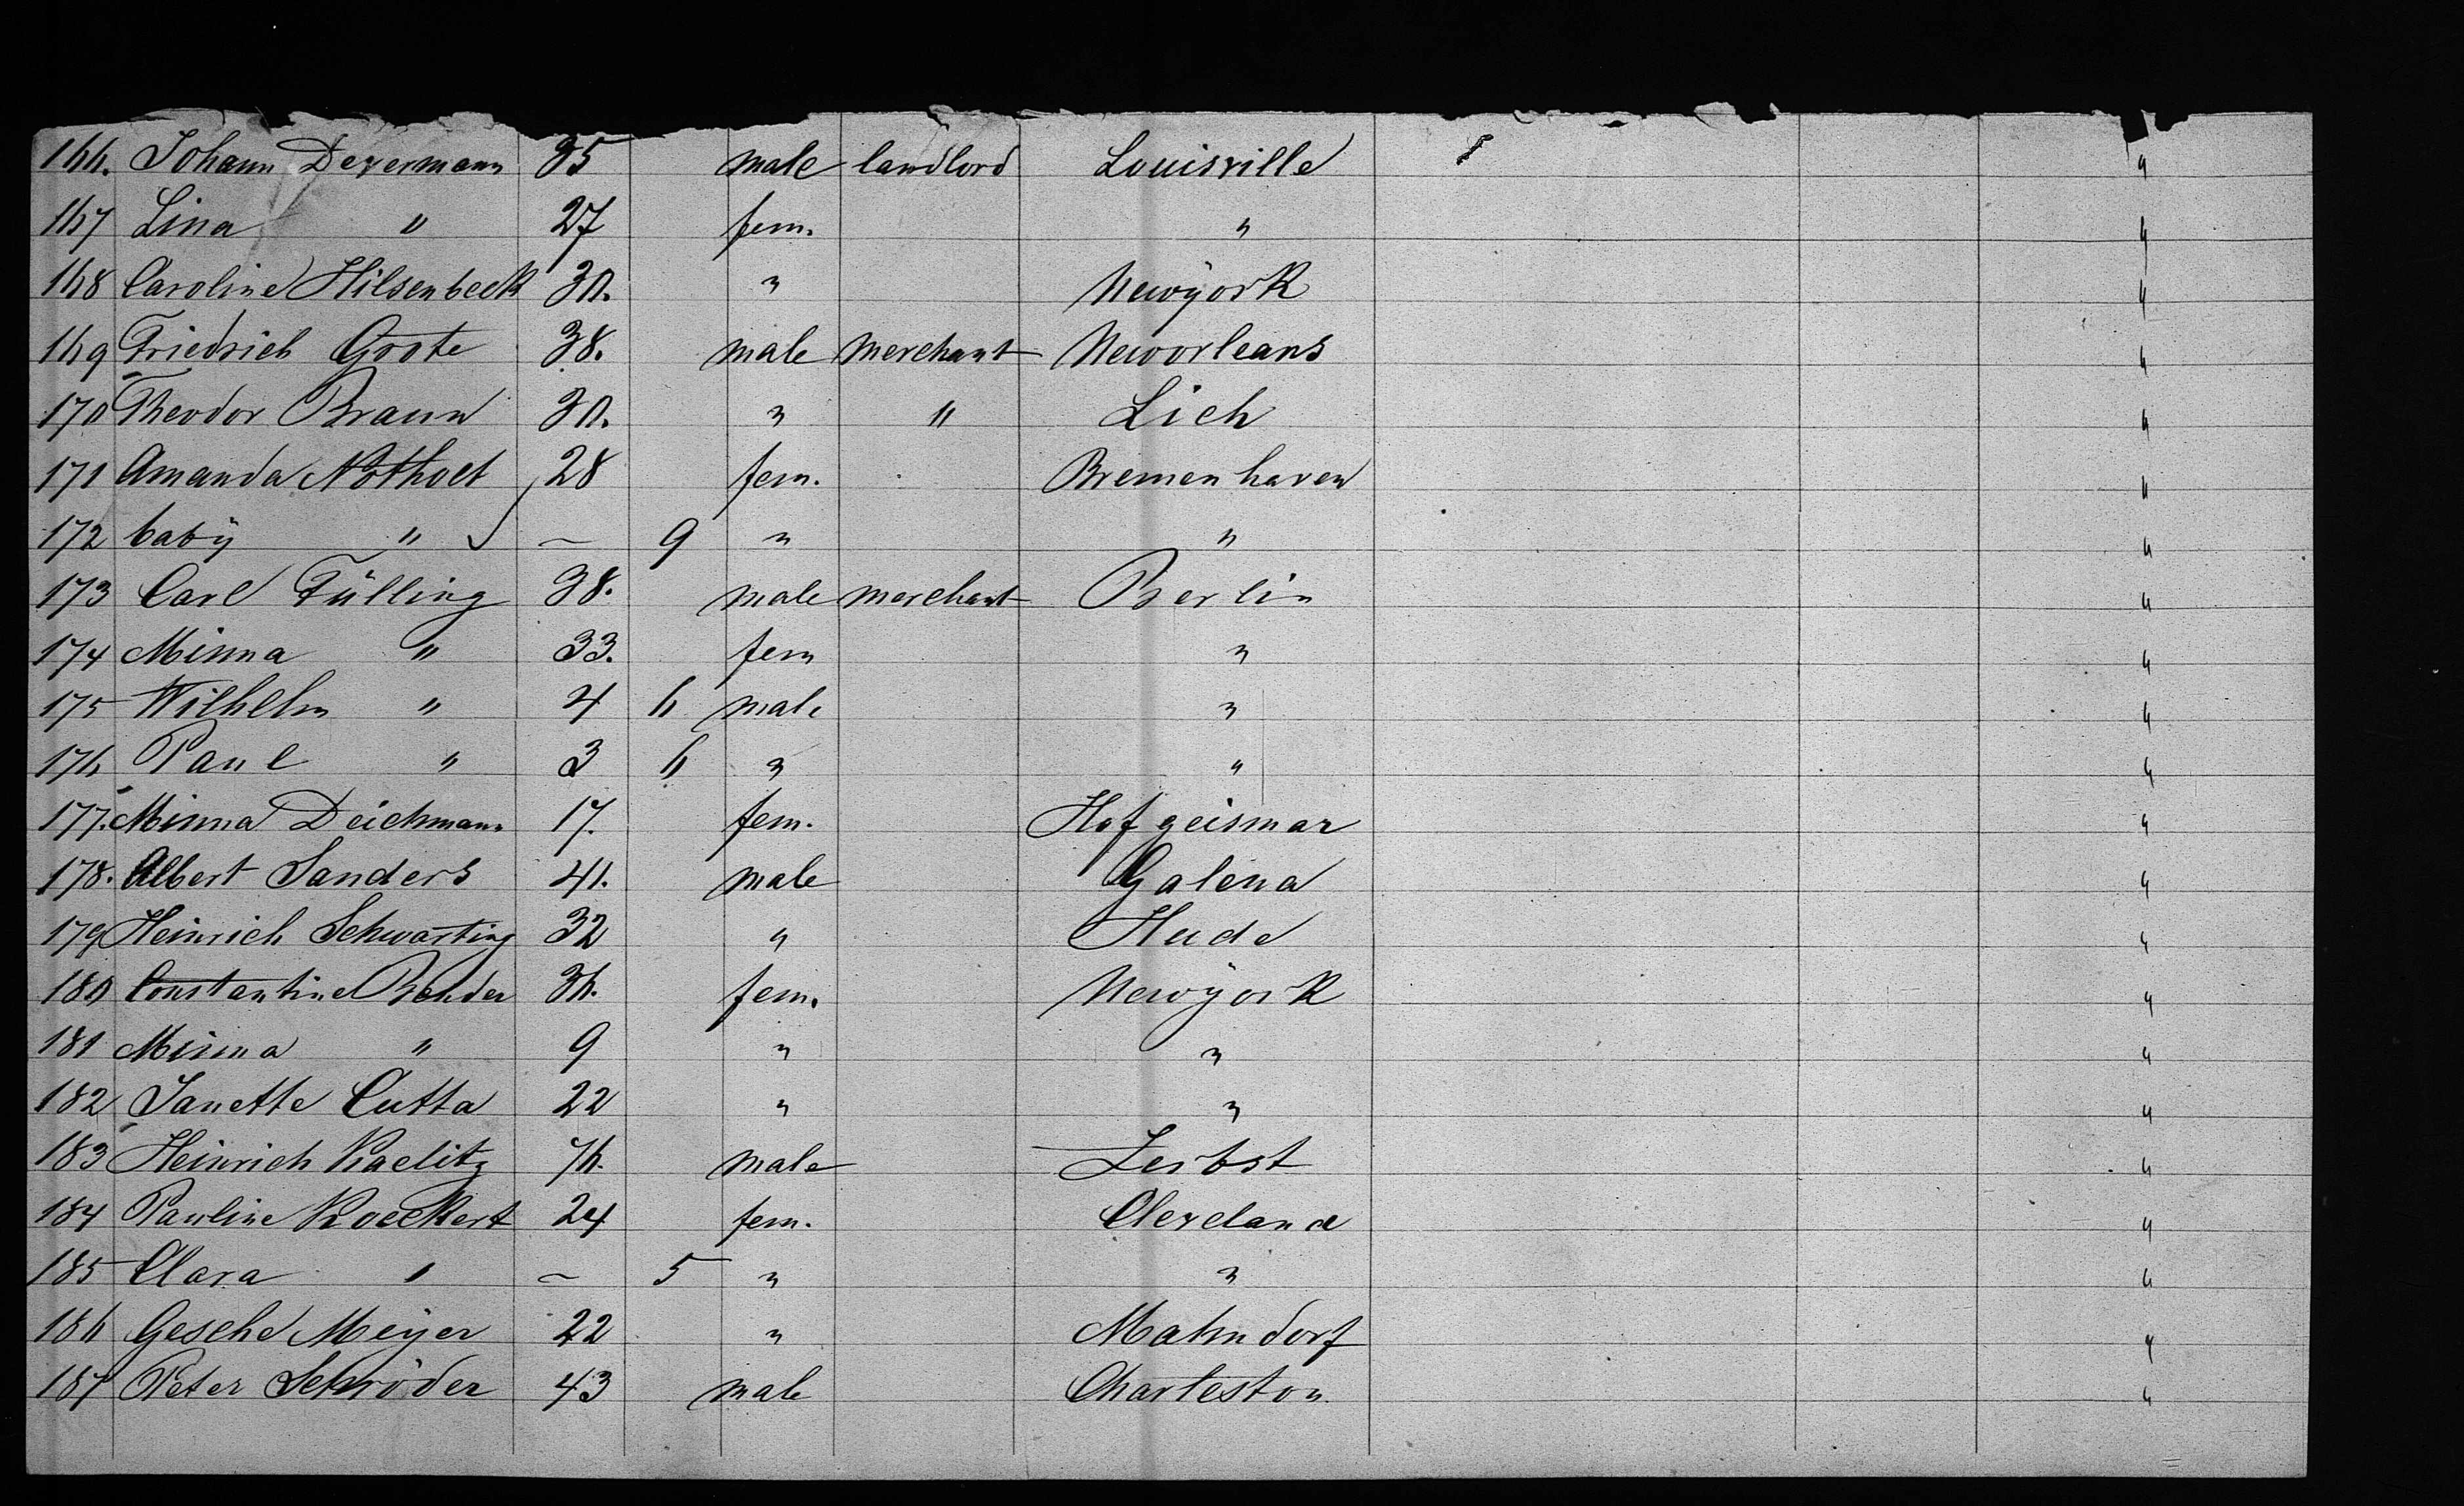 166. Johann Devermann 35 male landlord Louisville "
167 Lina " 27 fem. " "
168 Caroline Hilsenbeck 30. " Newÿork "
169 Friedrich Grote 38. male merchant Neworleans "
170 Theodor Braun 30. " " Lich "
171 Amanda Notholt 28 fem. Bremenhaven "
172 babÿ " — 9 " " "
173 Carl Fülling 38. male merchant Berlin "
174 Minna " 33. fem " "
175 Wilhelm " 4 6 male " "
176 Paul " 3 6 " " "
177. Minna Deichmann 17. fem. Hofgeismar "
178. Albert Sanders 41. male Galena "
179 Heinrich Schwarting 32 " Hude "
180 Constantine Bender 36. fem. Newÿork "
181 Minna " 9 " " "
182 Janette Cutta 22 " " "
183 Heinrich Kaelitz 76. male Zerbst "
184 Pauline Koeckert 24 fem. Cleveland "
185 Clara " — 5 " " "
186 Gesche Meÿer 22 " Mahndorf "
187 Peter Schröder 43 male Charleston "